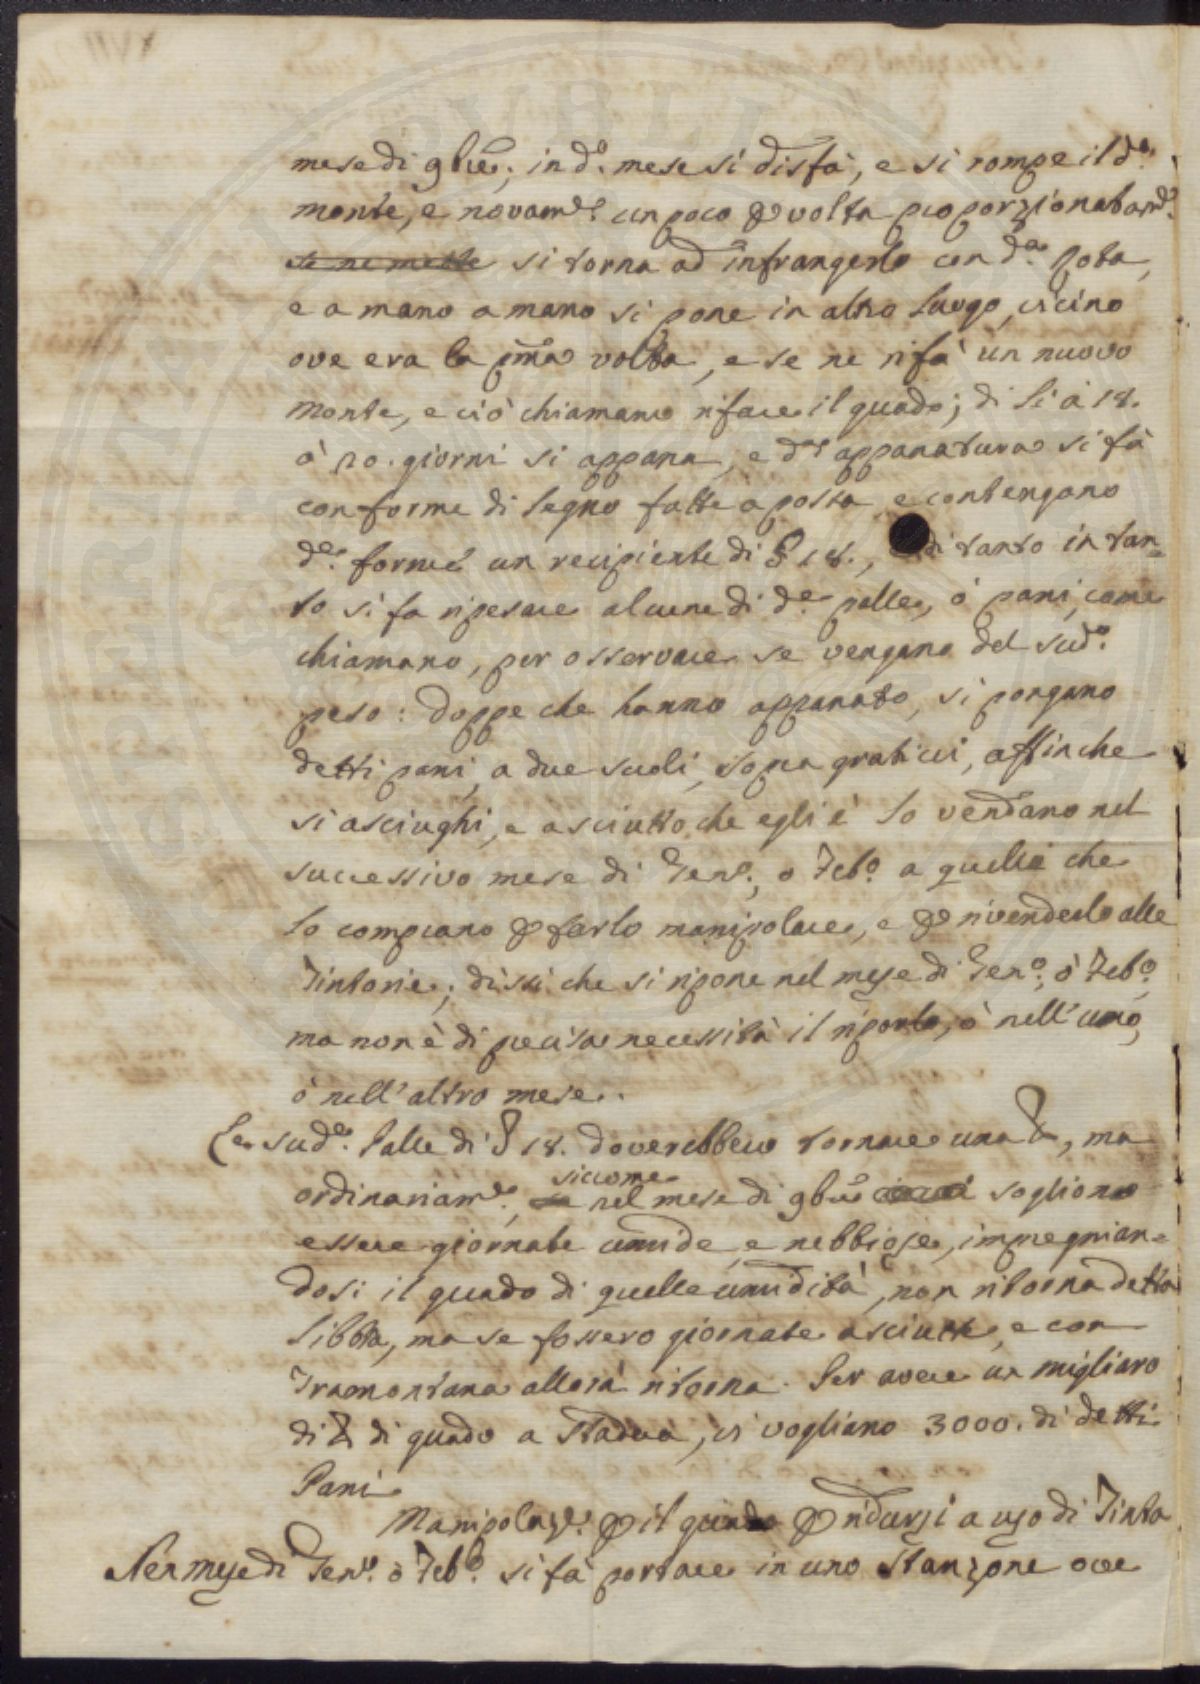 mese di 9bre; in d.º mese si disfà, e si rompe il d.º
monte, e novam.te un poco p volta proporzionatam.te
se ne mette si torna ad infrangerlo con d.ª Rota,
e a mano a mano si pone in altro luogo, vicino
ove era la pma volta, e se ne rifà un nuovo
monte, e ciò chiamano rifare il guado; di lì à 18.
ò 20. giorni si appana, e d.ª appanatura si fà
con forme di legno fatte a posta e contengano
d.e forme un recipiente di 18., di tanto in tan=
to si fa ripesare alcune di d.e palle, ò pani, come
chiamano, per osservare se vengano del sud.º
peso: doppo che hanno appanato, si pongano
detti pani, a due suoli, sopra graticci, affinche
si asciughi, e asciutto che egli è lo vendano nel
successivo mese di Gen.º, o Feb.º a quelli che
lo comprano p farlo manipolare, e p rivenderlo alle
Tintorie; dissi che si ripone nel mese di Gen.º, ò Feb.º
ma non è di precisa necessità il riporlo, ò nell'uno,
ò nell'altro mese.
Le sud.e Palle di 18. doverebbero tornare una, ma
ordinariam.te, siccome nel mese di 9bre sogliono
essere giornate umide, e nebbiose, impregnian=
dosi il guado di quelle umidità, non ritorna detta
libbra, ma se fossero giornate asciutte, e con
Tramontana allora ritorna. Per avere un migliaro
di di guado a Stadera, ci vogliano 3000. di detti
Pani
Manipolaz.e p il guado p ridursi a uso di Tinta
Nen mese di Gen.º ò Feb.º si fà portare in uno Stanzone ove